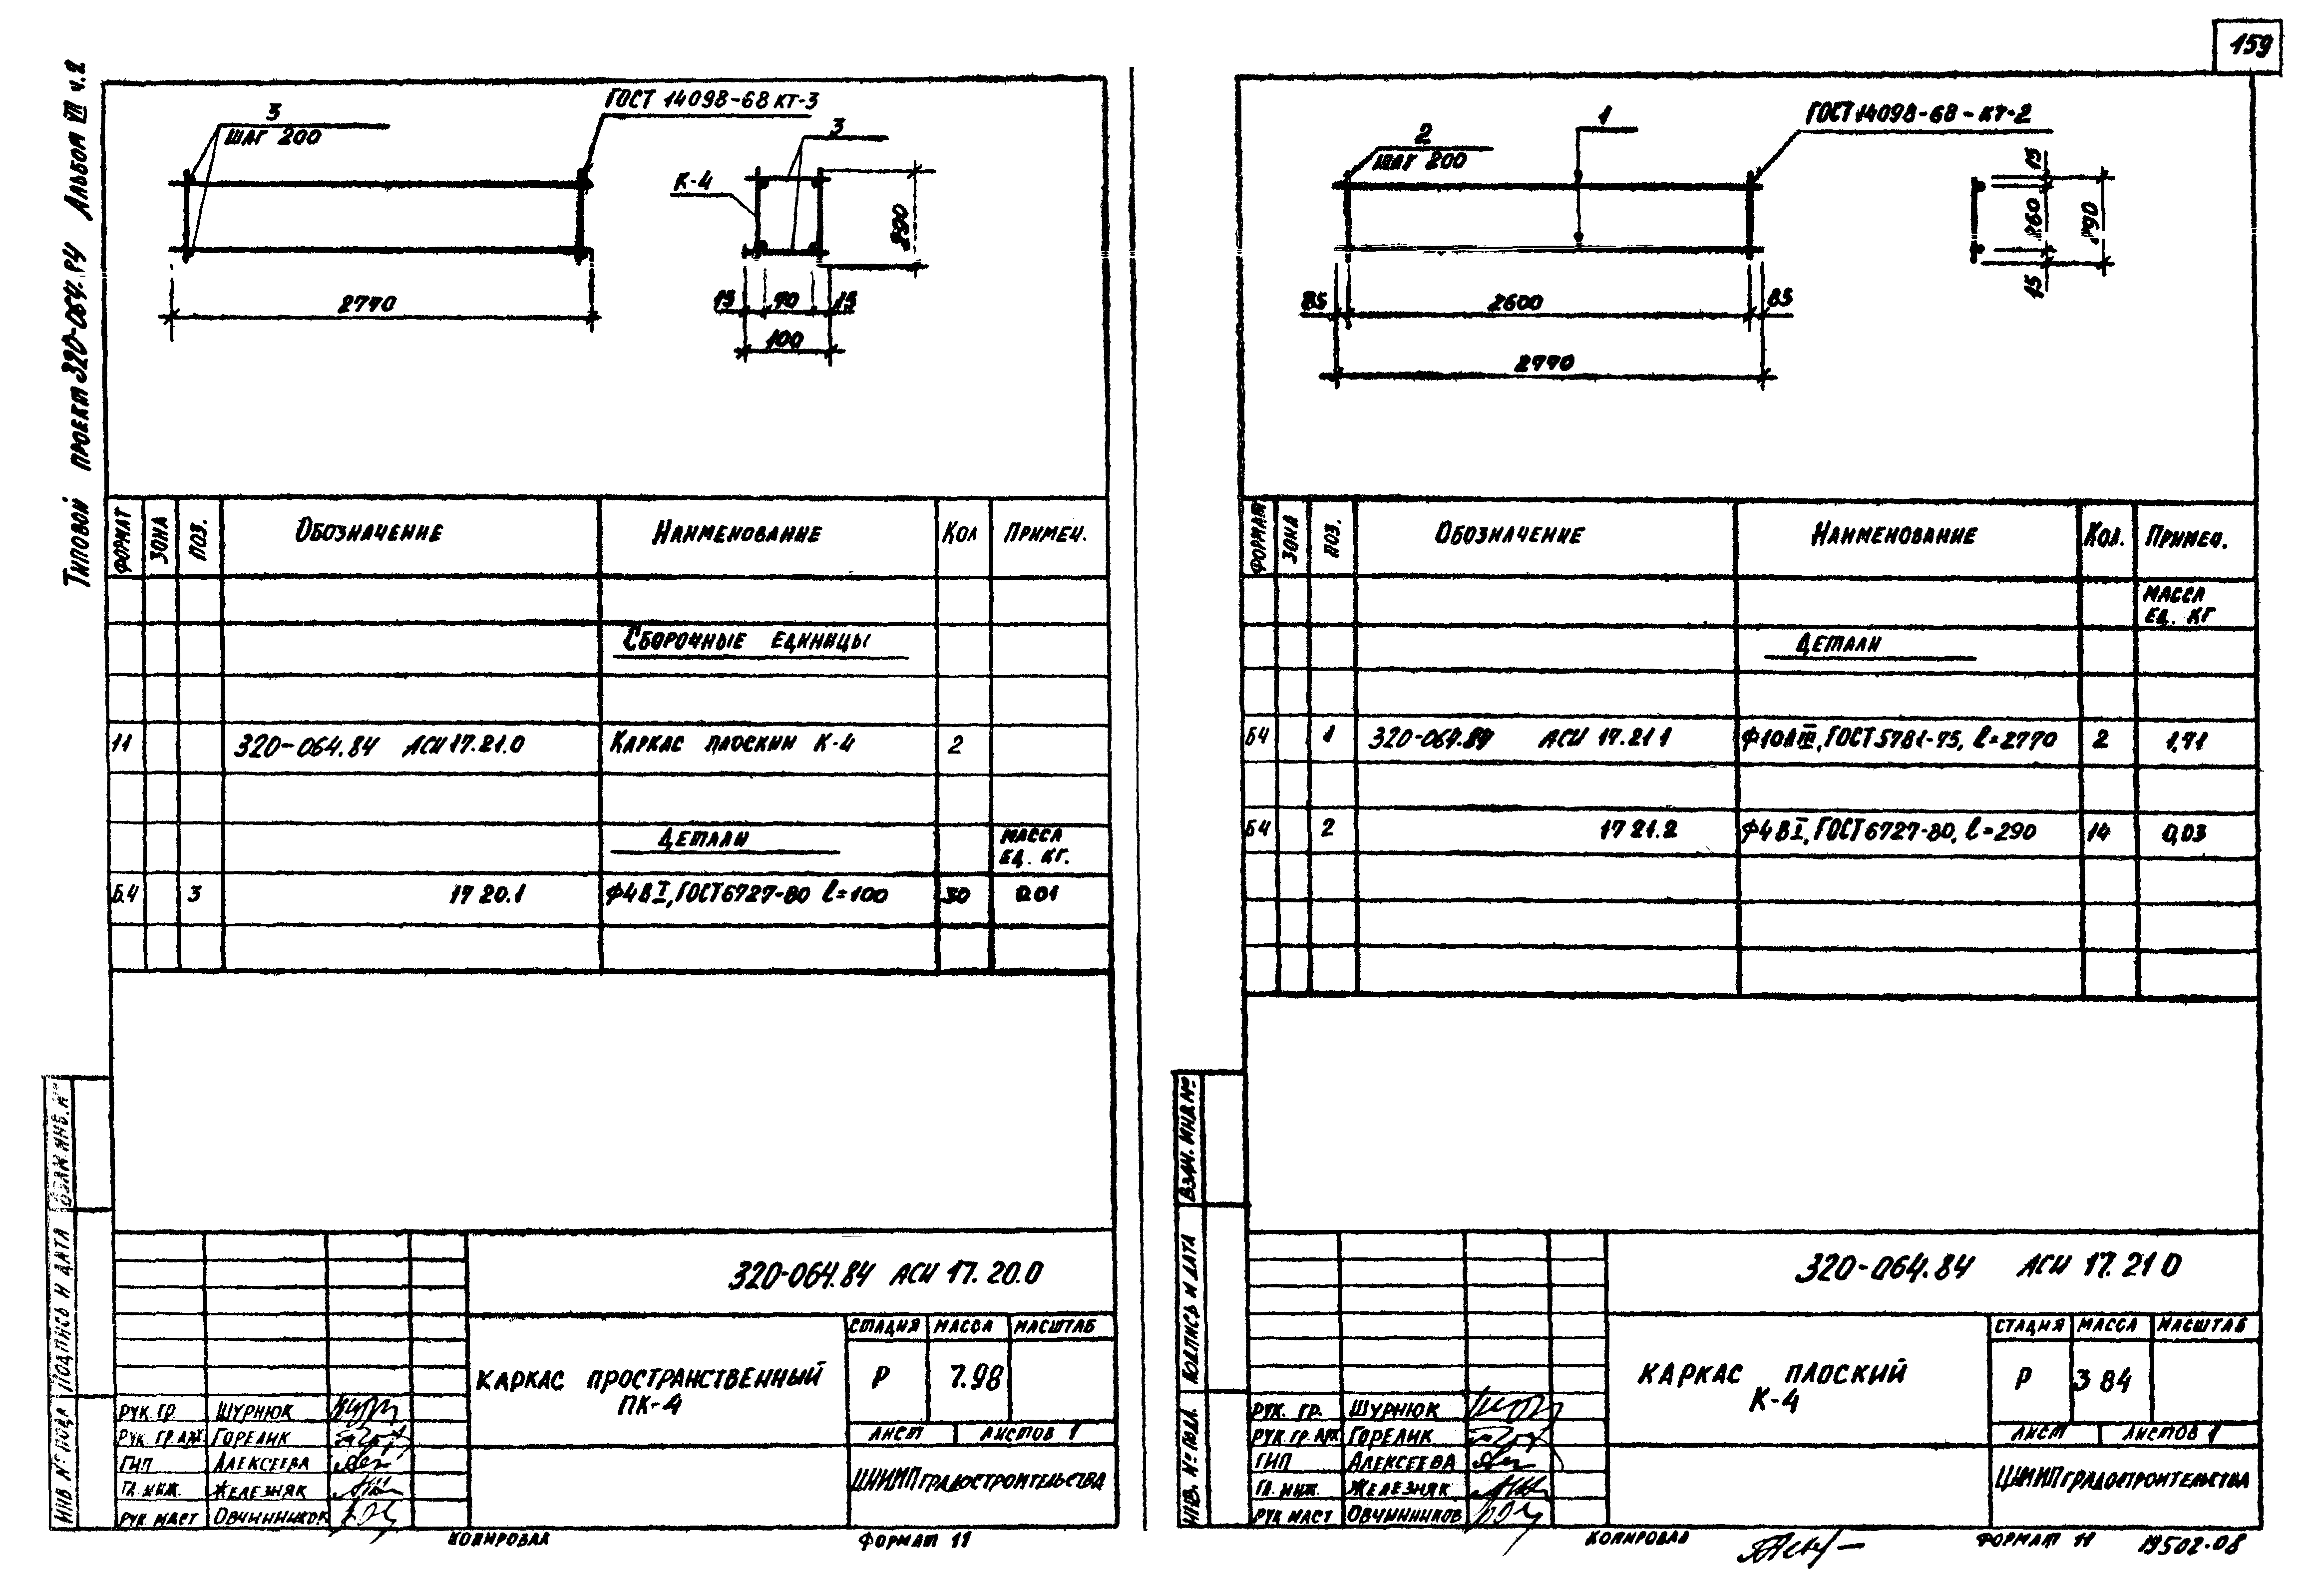 159
Типовой проект 320-064.84 Альбом VIII ч.2
3
ШАГ 200
ГОСТ 14098-68 КТ-3
3
К-4
290
2770
15 70 15
100
ФОРМАТ ЗОНА ПОЗ. ОБОЗНАЧЕНИЕ НАИМЕНОВАНИЕ КОЛ ПРИМЕЧ.
СБОРОЧНЫЕ ЕДИНИЦЫ
11 320-064.84 АСИ 17.21.0 КАРКАС ПЛОСКИЙ К-4 2
ДЕТАЛИ МАССА
ЕД. КГ.
Б.4 3 17 20.1 Ф4ВI, ГОСТ 6727-80 ℓ=100 30 0.01
ПОДПИСЬ И ДАТА
ИНВ № ПОДЛ
320-064.84 АСИ 17. 20.0
КАРКАС ПРОСТРАНСТВЕННЫЙ
ПК-4
СТАДИЯ МАССА МАСШТАБ
Р 7.98
ЛИСТ ЛИСТОВ 1
ЦНИИП ГРАДОСТРОИТЕЛЬСТВА
РУК. ГР. ШУРНЮК
РУК. ГР. АРХ ГОРЕЛИК
ГИП АЛЕКСЕЕВА
ГЛ. ИНЖ. ЖЕЛЕЗНЯК
РУК МАСТ ОВЧИННИКОВ
КОПИРОВАЛ ФОРМАТ 11
2
ШАГ 200
1
ГОСТ 14098-68-КТ-2
15
260
290
15
85 2600 85
2770
ФОРМАТ ЗОНА ПОЗ. ОБОЗНАЧЕНИЕ НАИМЕНОВАНИЕ КОЛ. ПРИМЕЧ.
МАССА
ЕД. КГ
ДЕТАЛИ
Б4 1 320-064.84 АСИ 17.21 1 Ф10АIII, ГОСТ 5781-75, ℓ=2770 2 1,71
Б4 2 17 21.2 Ф4ВI, ГОСТ 6727-80, ℓ=290 14 0,03
ВЗАМ. ИНВ.№
ПОДПИСЬ И ДАТА
ИНВ. № ПОДЛ.
320-064.84 АСИ 17. 21 0
КАРКАС ПЛОСКИЙ
К-4
СТАДИЯ МАССА МАСШТАБ
Р 3 84
ЛИСТ ЛИСТОВ 1
ЦНИИП ГРАДОСТРОИТЕЛЬСТВА
РУК. ГР. ШУРНЮК
РУК. ГР. АРХ ГОРЕЛИК
ГИП АЛЕКСЕЕВА
ГЛ. ИНЖ. ЖЕЛЕЗНЯК
РУК МАСТ ОВЧИННИКОВ
КОПИРОВАЛ ФОРМАТ 11 19502-08